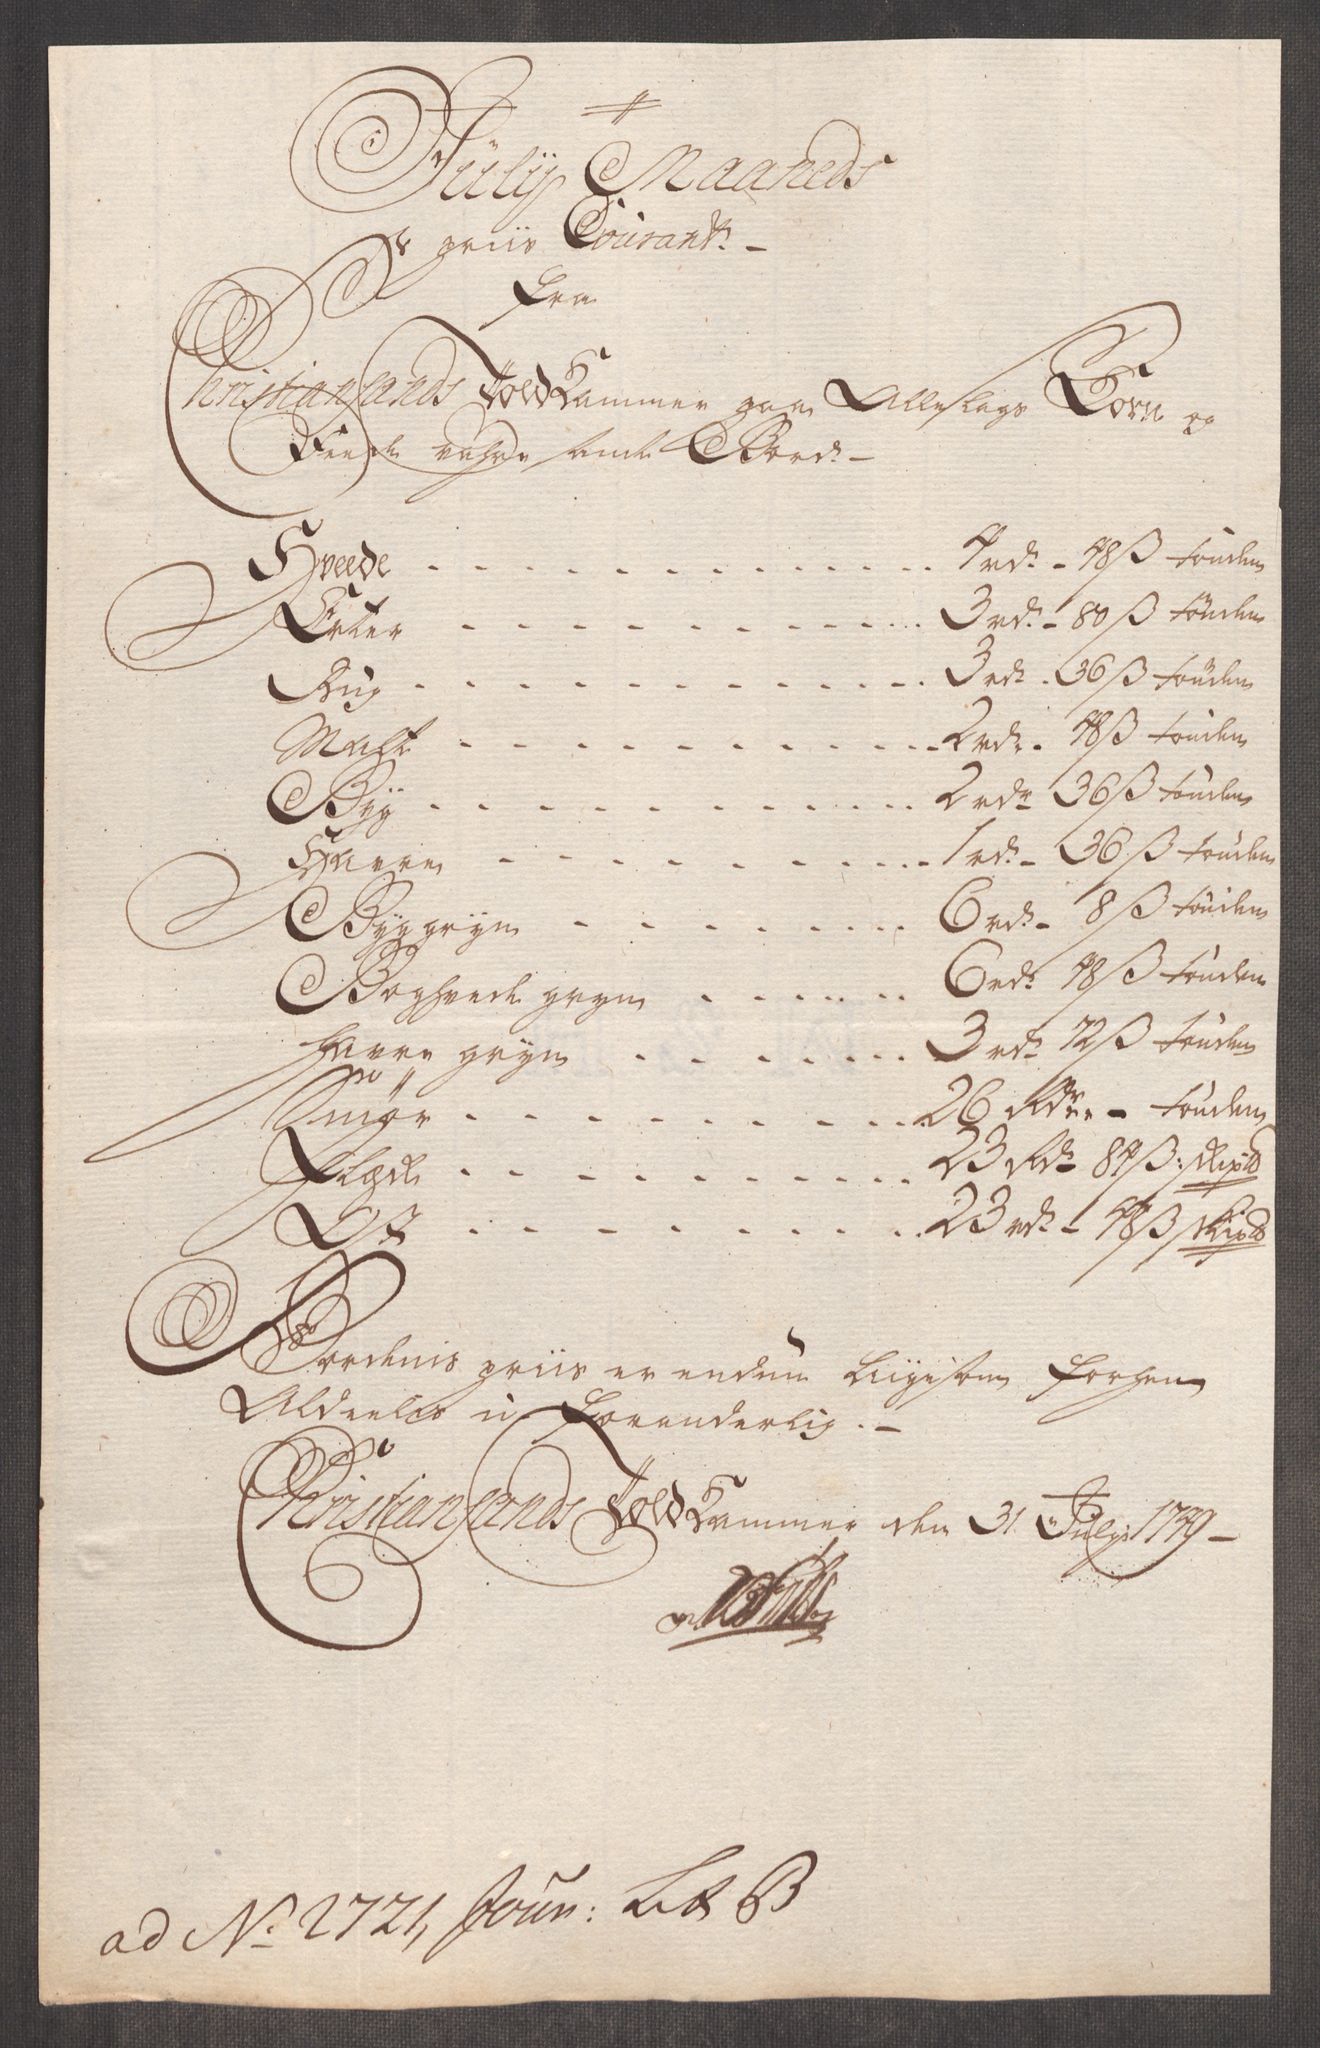 Julij Maaneds
priis Courant.
fra
Christiansands Told Kammer paa Alleslags Korn og
Feede vahre samt Bord.
Hveede 4 rd. 48 ß tønden
Erter 3 rd. 80 ß tønden
Rug 3 rd. 36 ß tønden
Malt 2 rd. 48 ß tønden
Byg 2 rd. 36 ß tønden
Havre 1 rd. 36 ß tønden
Byggryn 6 rd. 8 ß tønden
Boghvede gryn 6 rd. 48 ß tønden
havre gryn 3 rd. 72 ß tønden
Smør 26 Rdr. - tønden
Flæsk 23 Rd. 84 ß: skip℔
Ost 23 rd. 48 ß skip℔
Bordenis priis er endnu liigesom forhen
Aldeelis u-foranderlig.
Christiansands Told Kammer den 31 Julij 1739
ad No. 2721, Jour: Lit B